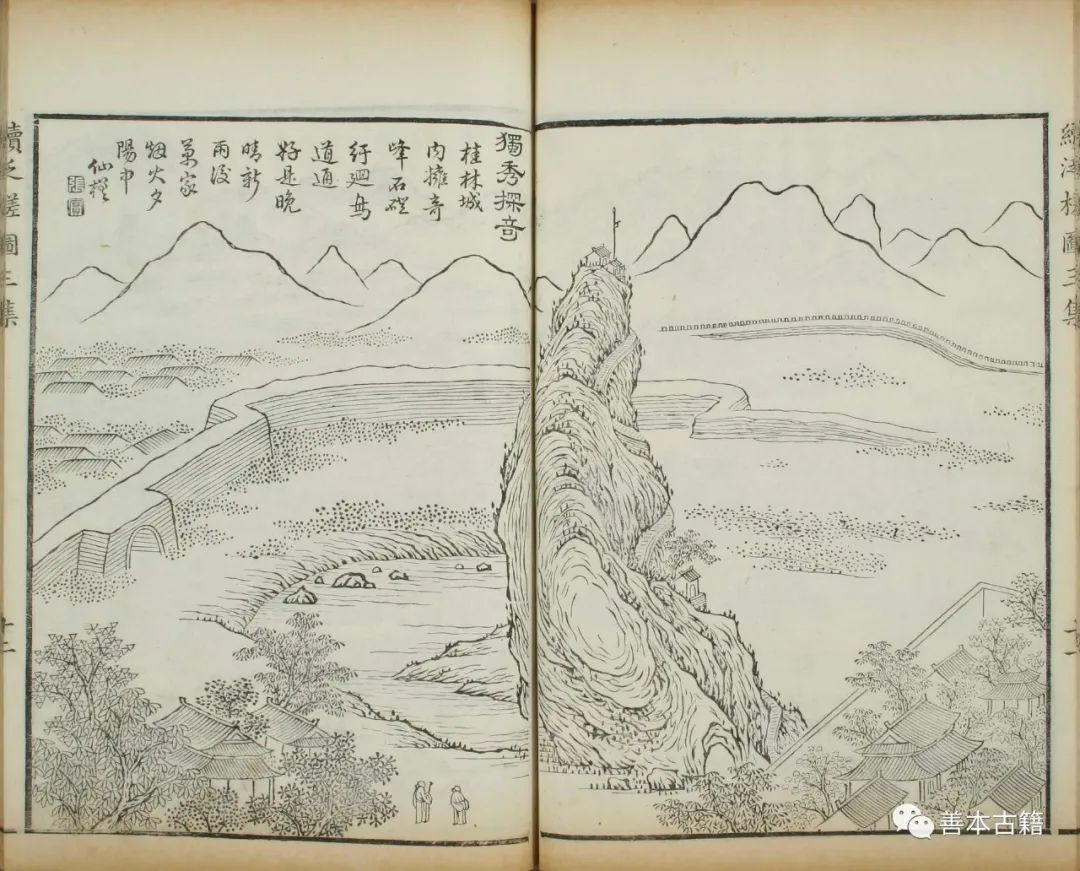 續泛槎圖三集
獨秀探奇
桂林城
内擁奇
峰石磴
紆廻鳥
道通
好是晚
晴新
雨後
萬家
烟火夕
陽中
仙槎
張寶
續泛槎圖三集
十二
善本古籍